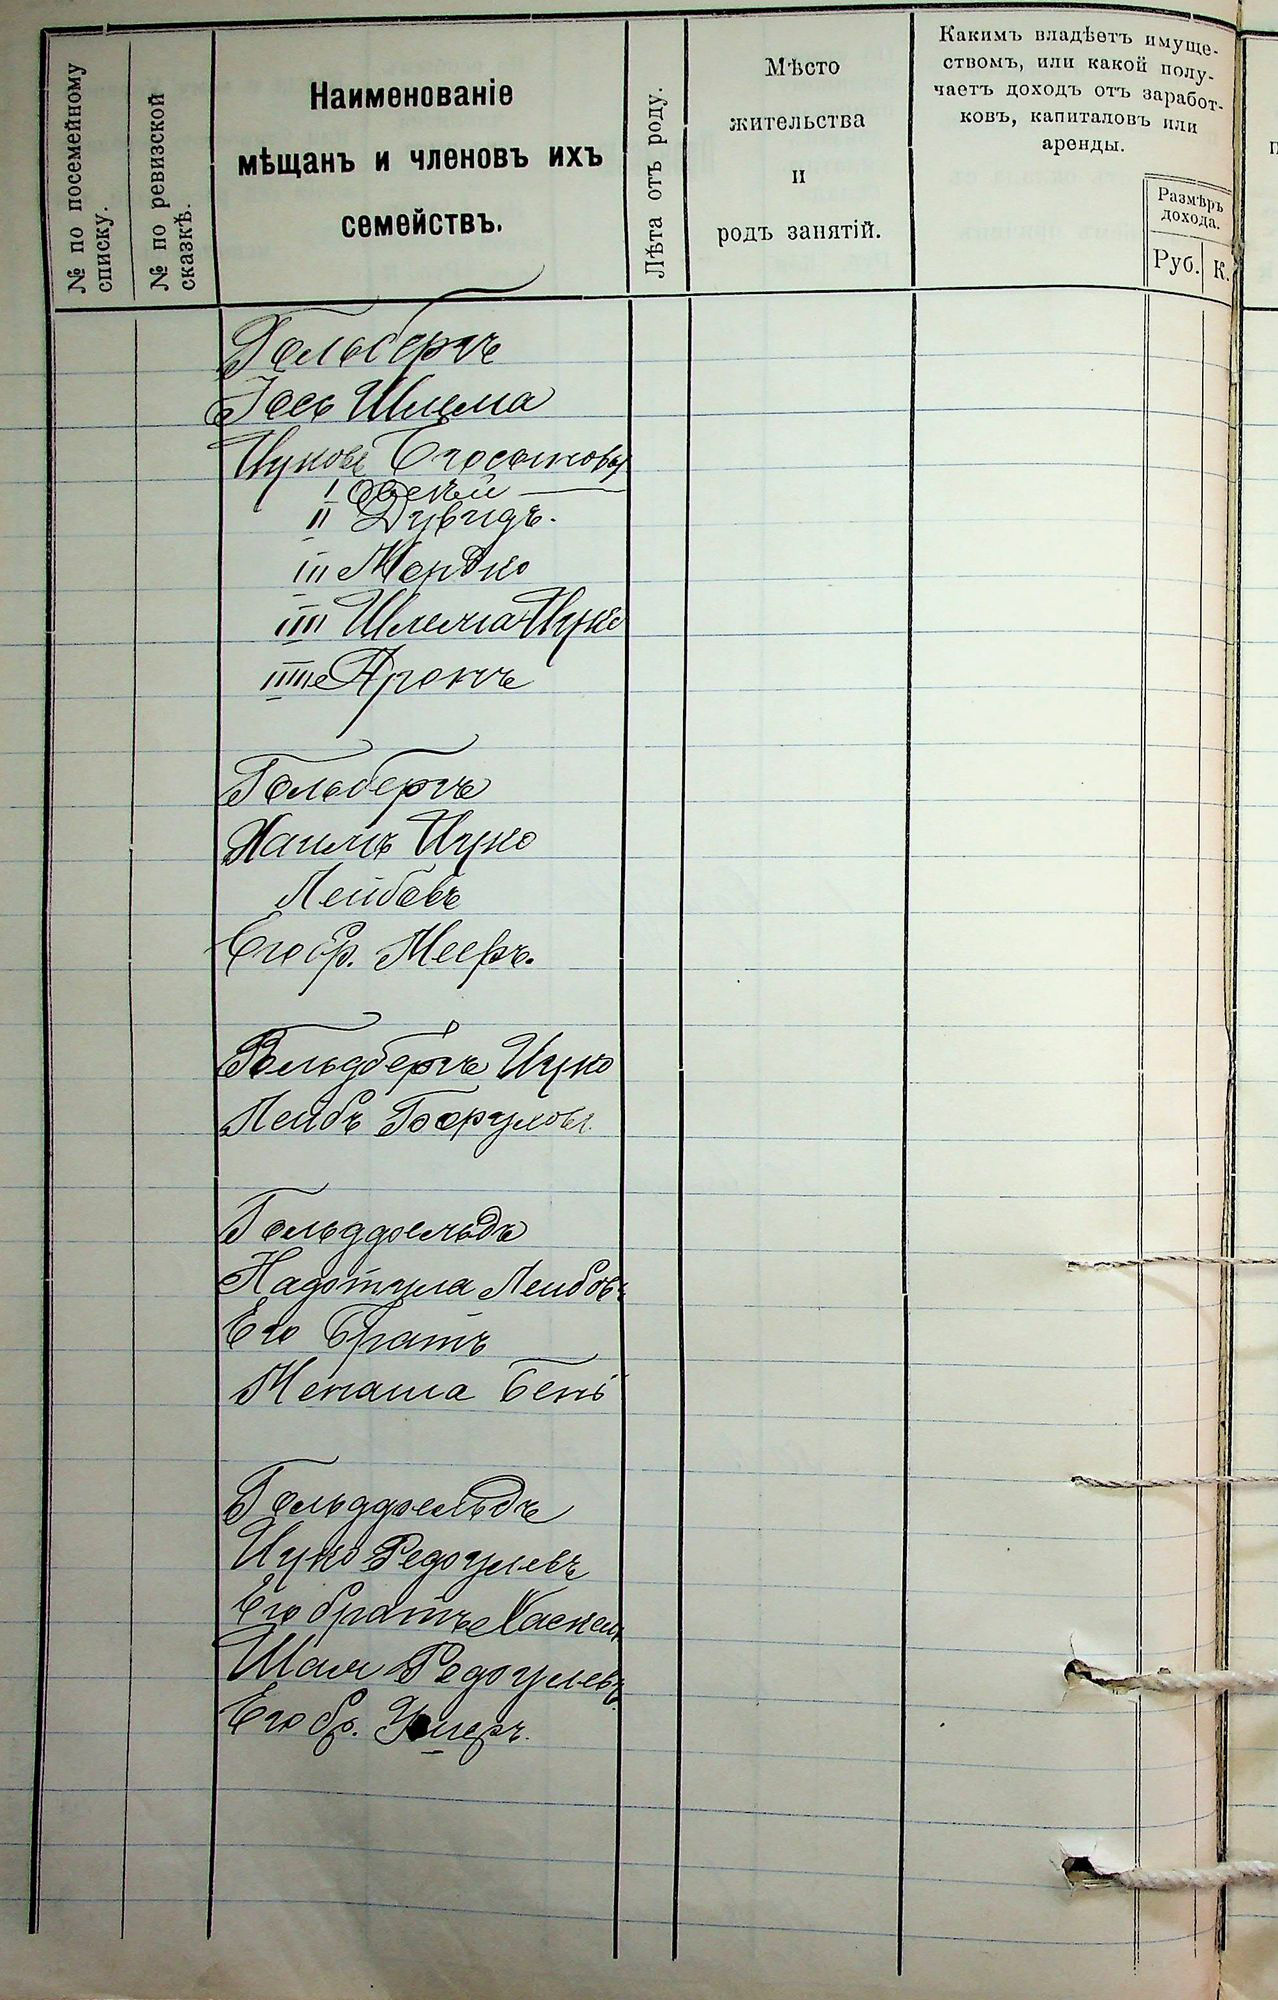 № по посемейному
списку.
№ по ревизской
сказкѣ.
Наименованіе
мѣщанъ и членовъ ихъ
семействъ.
Лѣта отъ роду.
Мѣсто
жительства
и
родъ занятій.
Какимъ владѣетъ имуще-
ствомъ, или какой полу-
чаетъ доходъ отъ заработ-
ковъ, капиталовъ или
аренды.
Размѣръ
дохода.
Руб.
К.
Гольбергъ
Іось Шлема
Ицковъ Его сыновья
I Овсѣй
II Дувидъ.
III Мордко
IIII Шлема Ицко
IIIII Аронъ
Гольбергъ
Хаимъ Ицко
Лейбовъ
Его бр. Мееръ.
Гольдбергъ Ицко
Лейбъ Боруховъ
Гольдфельдъ
Лейбовъ
Его Братъ
Менаша Бені
Гольдфельдъ
Ицко
Его братъ Хаскель
Шая
Его бр.